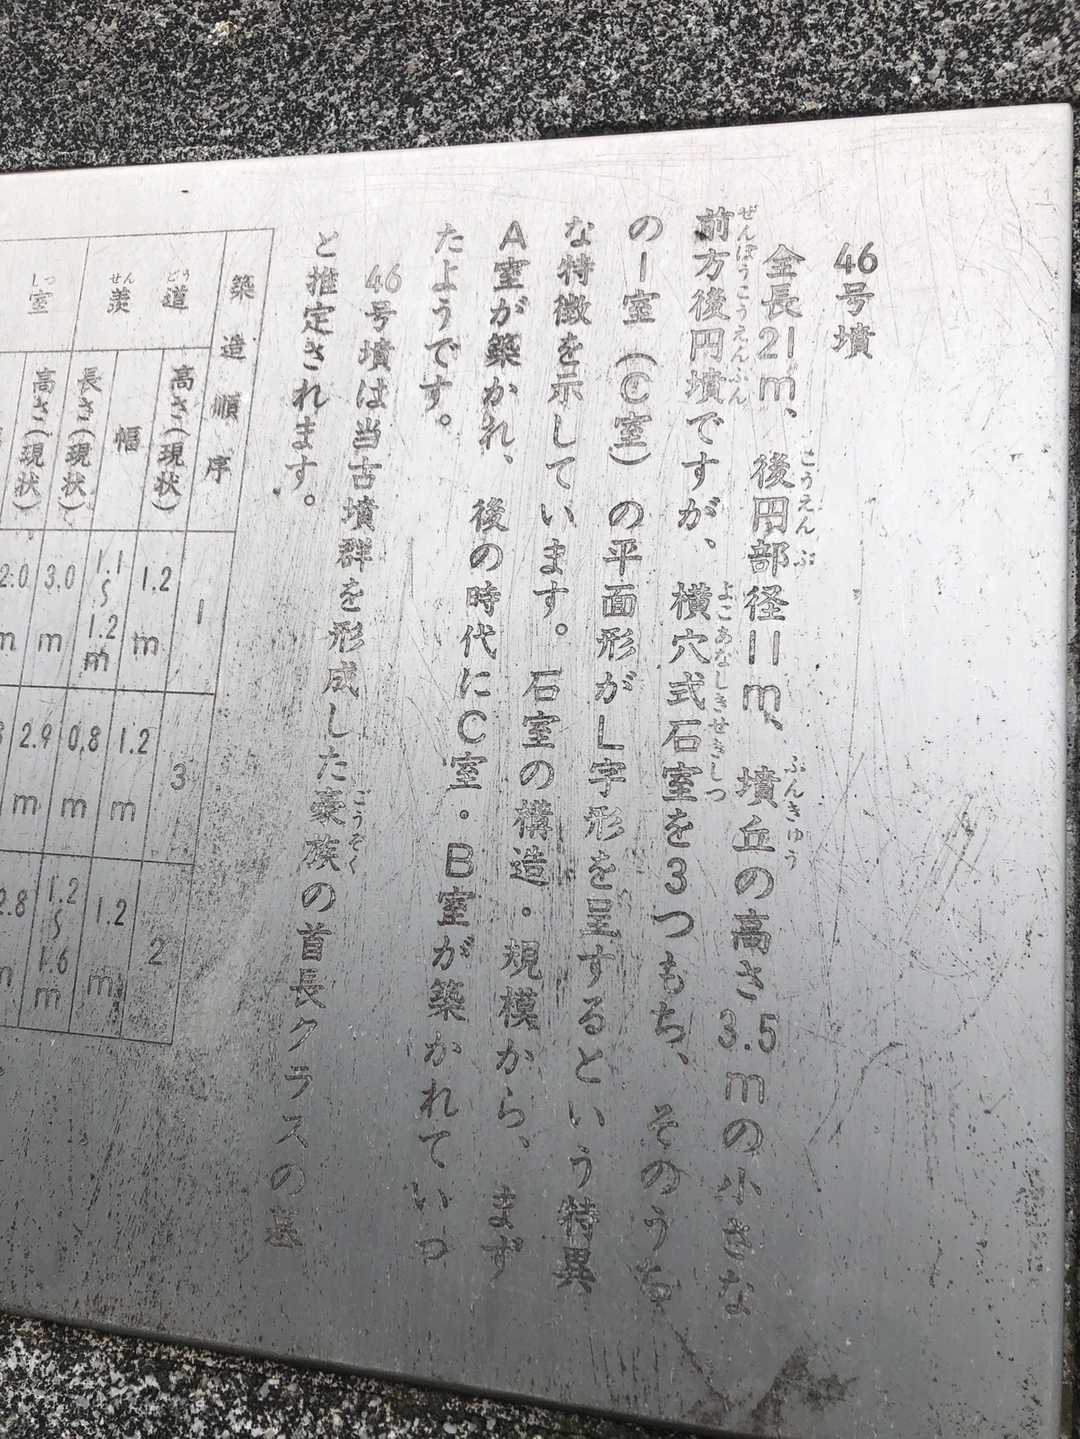 46号墳
全長21m、後円部径11m、墳丘の高さ3.5mの小さな
こうえんぶ
ふんきゅう
前方後円墳ですが、横穴式石室を3つもち、そのうち
ぜんぽうこうえんふん
よこあなしきせきしつ
の1室(C室)の平面形がL字形を呈するという特異
な特徴を示しています。石室の構造・規模から、まず
A室が築かれ、後の時代にC室・B室が築かれていっ
たようです。
46号墳は当古墳群を形成した豪族の首長クラスの墓
ごうぞく
と推定されます。
築造順序 1 3 2
羨道
せんどう
高さ(現状) 1.2m 1.2m 1.2m
幅 1.1〜1.2m 0.8m 1.2〜1.6m
長さ(現状) 3.0m 2.9m 2.8m
室
しつ
高さ(現状) 2.0m